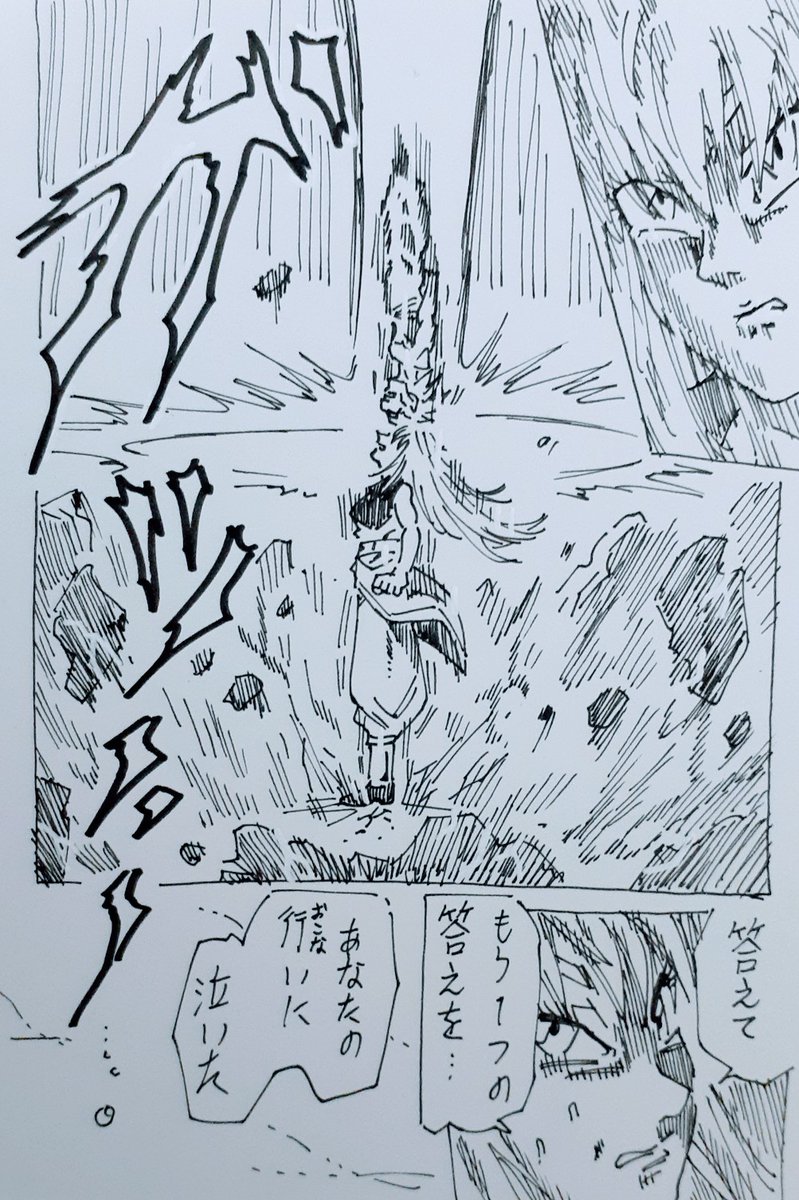 答えて
もう1つの
答えを…
あなたの
行いに
おこな
泣いた